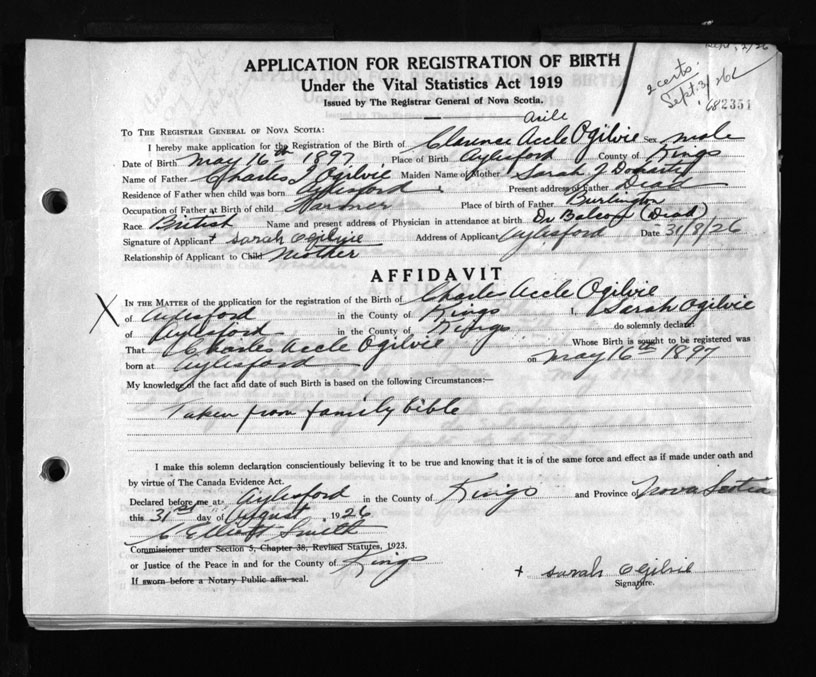 Sept. 2/26
APPLICATION FOR REGISTRATION OF BIRTH
Under the Vital Statistics Act 1919
Issued by The Registrar General of Nova Scotia.
2 certs.
Sept. 3/26
682351
TO THE REGISTRAR GENERAL OF NOVA SCOTIA:
I hereby make application for the Registration of the Birth of Clarence Accle Ogilvie Sex male
Date of Birth May 16th 1897 Place of Birth Aylesford County of Kings
Name of Father Charles J Ogilvie Maiden Name of Mother Sarah J
Residence of Father when child was born Aylesford Present address of Father Dead
Occupation of Father at Birth of child Farmer Place of birth of Father Burlington
Race British Name and present address of Physician in attendance at birth Dr Balcom (Dead)
Signature of Applicant + Sarah Ogilvie Address of Applicant Aylesford Date 31/8/26
Relationship of Applicant to Child Mother
AFFIDAVIT
X IN THE MATTER of the application for the registration of the Birth of Charles Accle Ogilvie
of Aylesford in the County of Kings I, Sarah Ogilvie
of Aylesford in the County of Kings do solemnly declare:
That Charles Accle Ogilvie Whose Birth is sought to be registered was
born at Aylesford on May 16th 1897
My knowledge of the fact and date of such Birth is based on the following Circumstances:—
Taken from family bible
I make this solemn declaration conscientiously believing it to be true and knowing that it is of the same force and effect as if made under oath and
by virtue of The Canada Evidence Act.
Declared before me at Aylesford in the County of Kings and Province of Nova Scotia
this 31st day of August 1926
C Elliott Smith
Commissioner under Section 5, Chapter 38, Revised Statutes, 1923.
or Justice of the Peace in and for the County of Kings
If sworn before a Notary Public affix seal.
+ Sarah Ogilvie
Signature.